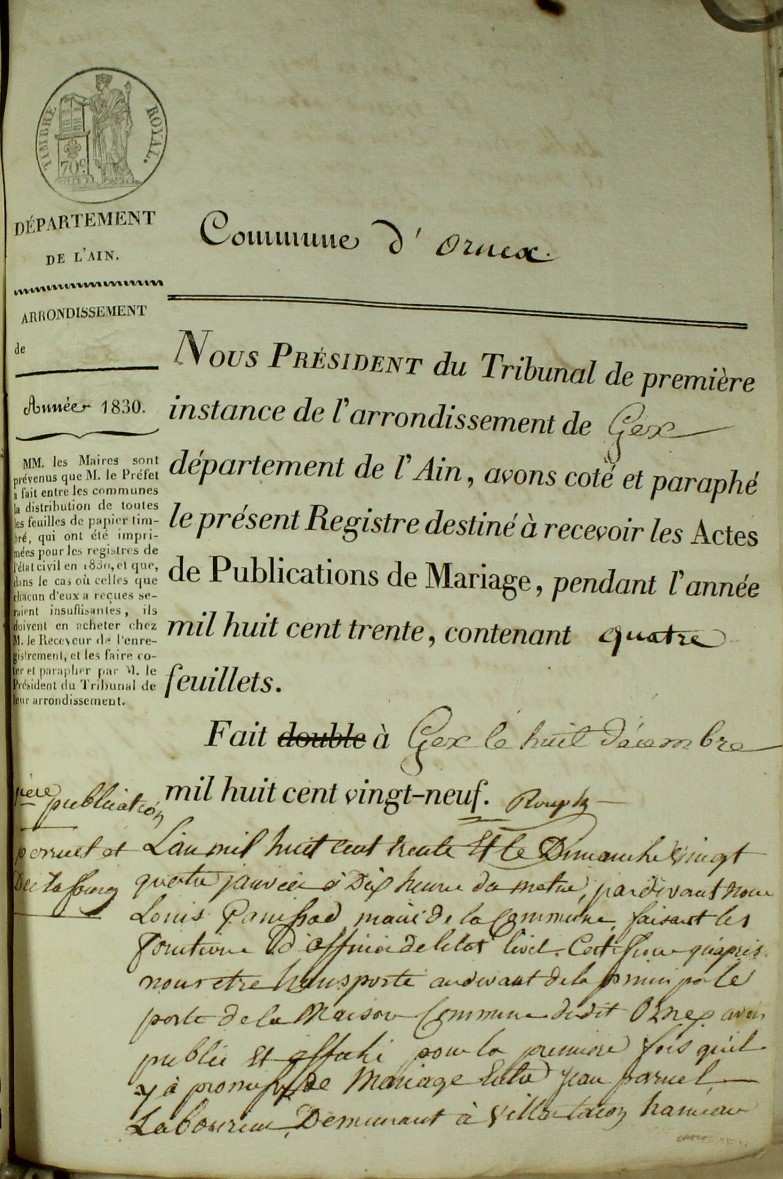 TIMBRE ROYAL.
70c
DÉPARTEMENT
DE L'AIN.
ARRONDISSEMENT
de
Année 1830.
MM. les Maires sont
prévenus que M. le Préfet
a fait entre les communes
la distribution de toutes
les feuilles de papier tim-
bré, qui ont été impri-
mées pour les registres de
l'état civil en 1830, et que,
dans le cas où celles que
chacun d'eux a reçues se-
raient insuffisantes, ils
doivent en acheter chez
M. le Receveur de l'enre-
gistrement, et les faire co-
ter et parapher par M. le
Président du Tribunal de
leur arrondissement.
Commune d'Ornex.
NOUS PRÉSIDENT du Tribunal de première
instance de l'arrondissement de Gex
département de l'Ain, avons coté et paraphé
le présent Registre destiné à recevoir les Actes
de Publications de Mariage, pendant l'année
mil huit cent trente, contenant quatre
feuillets.
Fait double à Gex le huit décembre
mil huit cent vingt-neuf.
1ere publication
pernet et
L'an mil huit cent trente Et le Dimanche vingt
quatre janvier à Dix heure du matin, pardevant nous
Louis Panissod maire de la Commune, faisant les
fonctions d'officier de l'etat Civil. Certifions qu'apres
nous etre transporté audevant de la principale
porte de la Maison Commune dudit Ornex avons
publié Et affiché pour la premiere fois qu'il
y à promesse de Mariage Entre jean pernet
Laboureur, Demeurant à